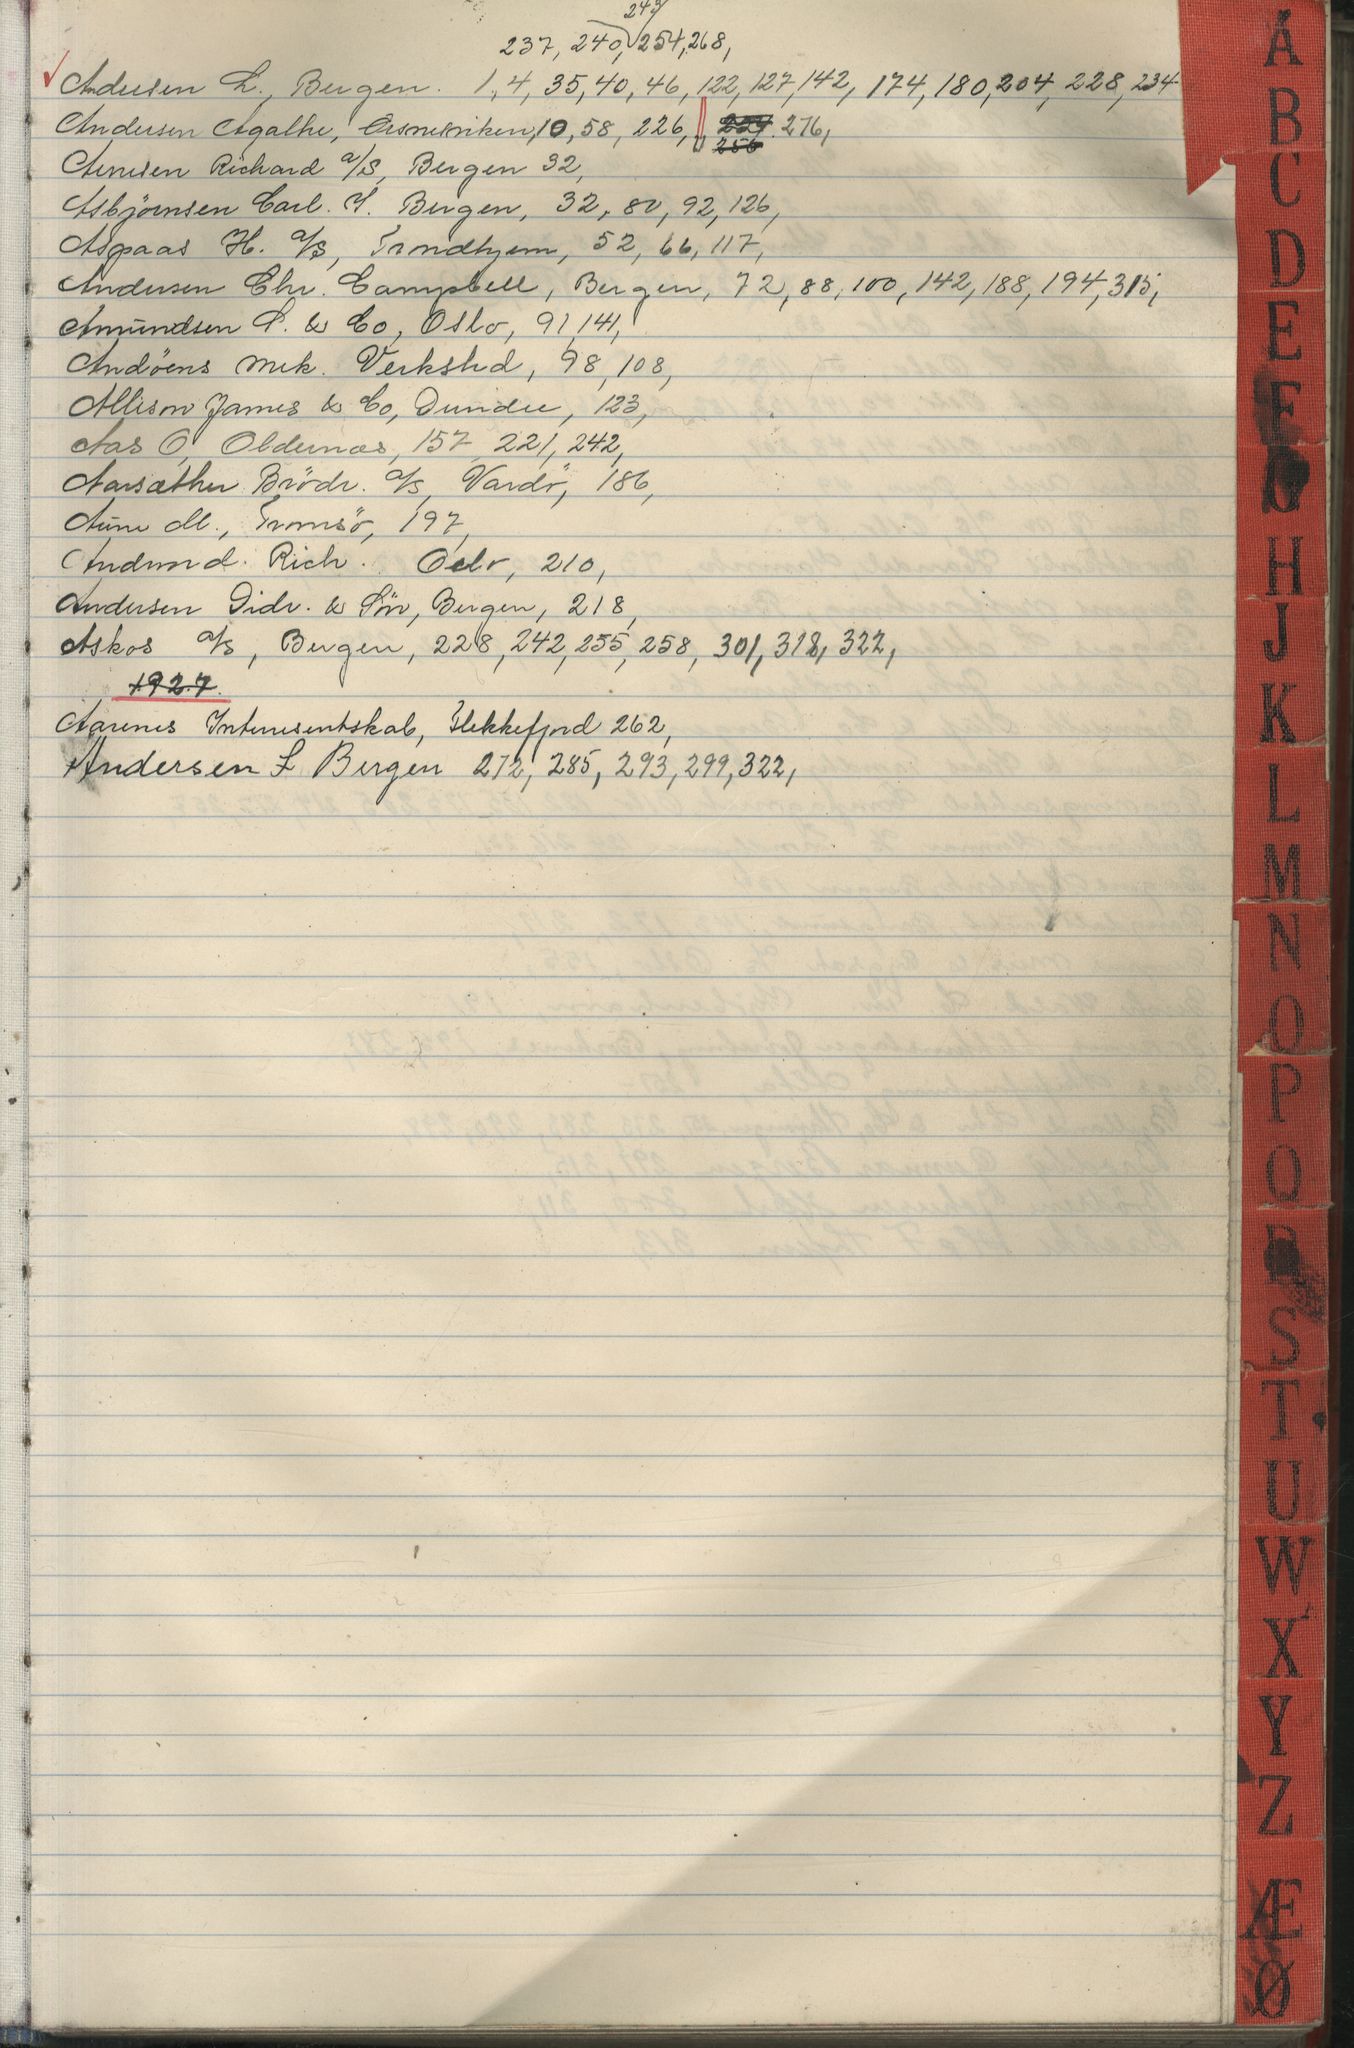 243
237, 240, 254, 268,
Andersen L., Bergen. 1, 4, 35, 40, 46, 122, 127, 142, 174, 180, 204, 228, 234
Andersen Agathe, 10, 58, 226, 276,
256
Arnesen Richard a/s, Bergen 32,
Asbjörnsen Carl. J. Bergen, 32, 80, 92, 126,
Aspaas H. a/s, Trondhjem, 52, 66, 117,
Andersen Chr. Campbell, Bergen, 72, 88, 100, 142, 188, 194, 315,
Amundsen C. & Co, Oslo, 91, 141,
Andöens mek. Verksted, 98, 108,
Allison James & Co, Dundee, 123,
Aas O, Oldernes, 157, 221, 242,
Aarsæther Brödr. a/s, Vardö, 186,
Aune M., Tromsö, 197,
Andvord. Rich. Oslo, 210,
Andersen Didr. & Sön, Bergen, 218,
Askos a/s, Bergen, 228, 242, 255, 258, 301, 318, 322,
1927.
Aarenes Interesentskab, Flekkefjord 262,
Andersen L Bergen 272, 285, 293, 299, 322,
A
B
C
D
E
F
H
J
K
L
M
N
O
P
Q
R
S
T
U
W
X
Y
Z
Æ
Ø